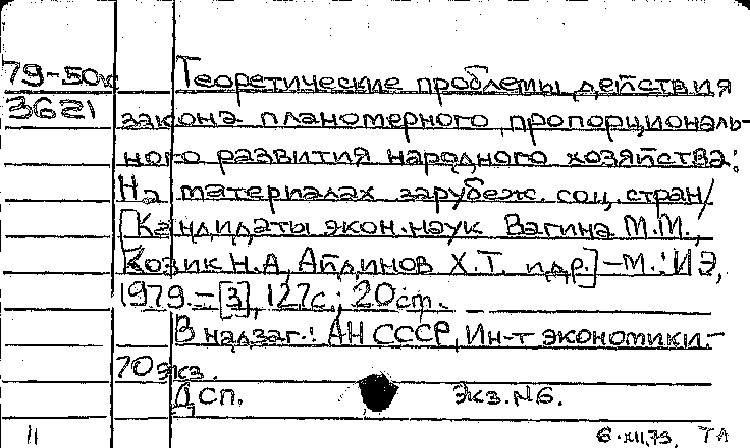 79-50к Теоретические проблемы действия
3621 закона планомерного, пропорциональ-
ного развития народного хозяйства:
На материалах зарубеж. соц. стран/
[Кандидаты экон. наук Вагина М.М.,
Козик Н.А, Айдинов Х.Т. и др.] – М.: ИЭ,
1979. – [3], 127с.; 20 см.
В надзаг.: АН СССР, Ин-т экономики. –
70 экз.
ДСП. Экз. №6.
11 6.XII.79. ТА